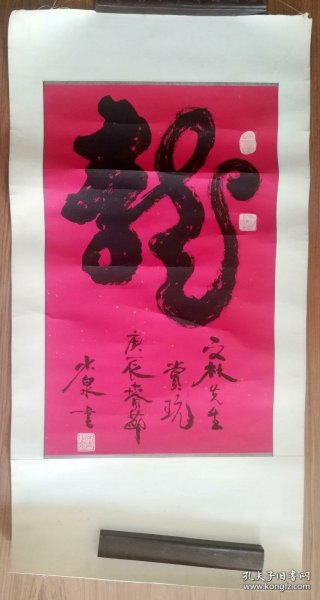 龍
文林先生
赏玩
庚辰春节
小泉书
孔夫子旧书网